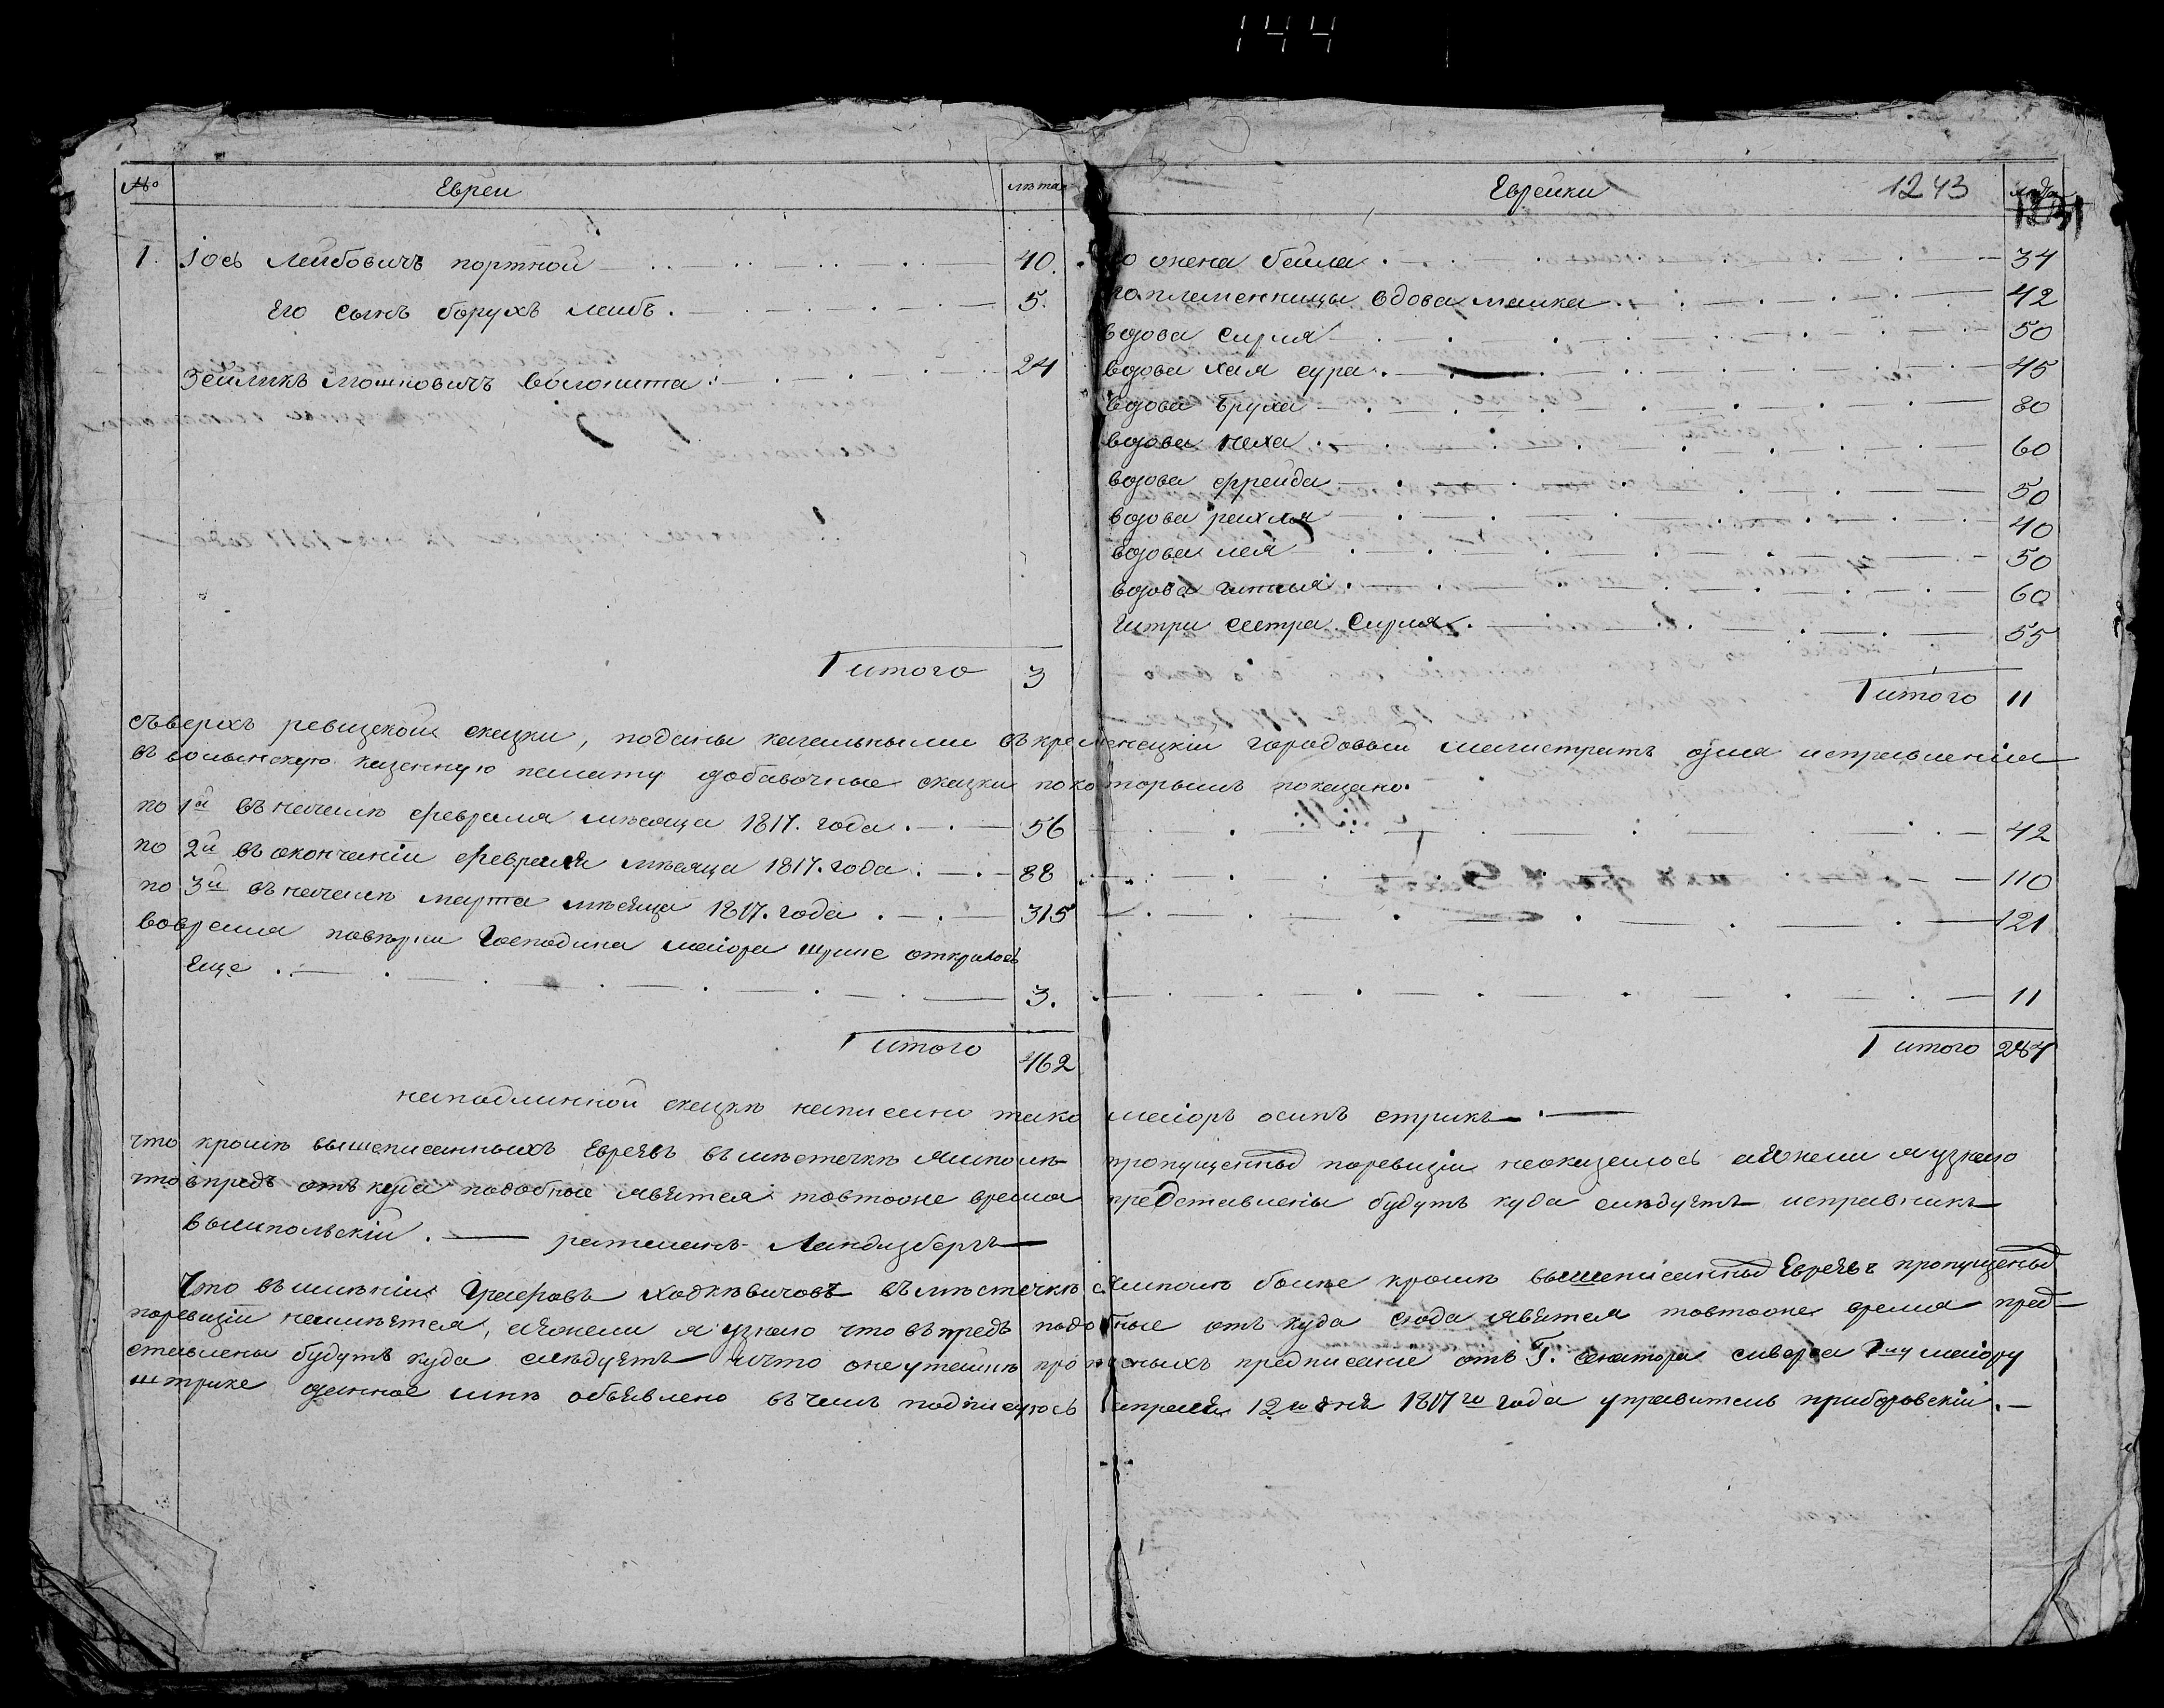 144
№ Евреи лѣта Еврейки 1243 лѣта
1. Іось Лейбовичъ портной 40. его жена бейла 34
Его сынъ борухъ лейбъ. 5. его племенницы вдова малка 42
вдова сирля 50
Зейликъ Мошковичъ волонита 24 вдова хая сура. 45
вдова бруха 80
вдова неха. 60
вдова фрейда 50
вдова рейхля 40
вдова лея 50
вдова гитля. 60
гитри сестра Сирля. 55
итого 3 итого 11
съверхъ ревизской сказки, поданы кагальными въ кременецкій городовый магистратъ для исправленія
въ волынскую казенную палату добавочные скази по которымъ показано.
по 1й въ началѣ февраля мѣсяца 1817. года. 56 42
по 2й въ окончаніи февраля мѣсяца 1817. года. 88 110
по 3й въ началѣ марта мѣсяца 1817. года. 315 121
вовремя повѣрки Господина маіора штрике открылось
еще 3. 11
итого 462 итого 284
на подлинной сказкѣ написано тако маіоръ осипъ стрикъ.
что кромѣ вышеписанныхъ Евреевъ въ мѣстечкѣ Ямполѣ пропущенныхъ поревизіи неоказалось аежели я узнаю
что впредь отъ куда подобные явятся товтоже время представлены будутъ куда слѣдуетъ исправникъ
вышпольскій. ратманъ Ландзбергъ
Что въ имѣніи Графовъ Ходкѣвичовъ въ мѣстечкѣ Ямполѣ болѣе кромѣ вышеписанныхъ Евреевъ пропущеныхъ
поревизіи неимѣется, аежели я узнаю что въпредь подобные отъ куда сюда явятся товтоже время пред-
ставлены будутъ куда слѣдуетъ ичто онеутайкѣ предписаніе отъ Г. сенатора сиверса маіору
штрике данное мнѣ объявлено въ чемъ подписуюсь апреля 12го дня 1817го года управитель приборовскій.